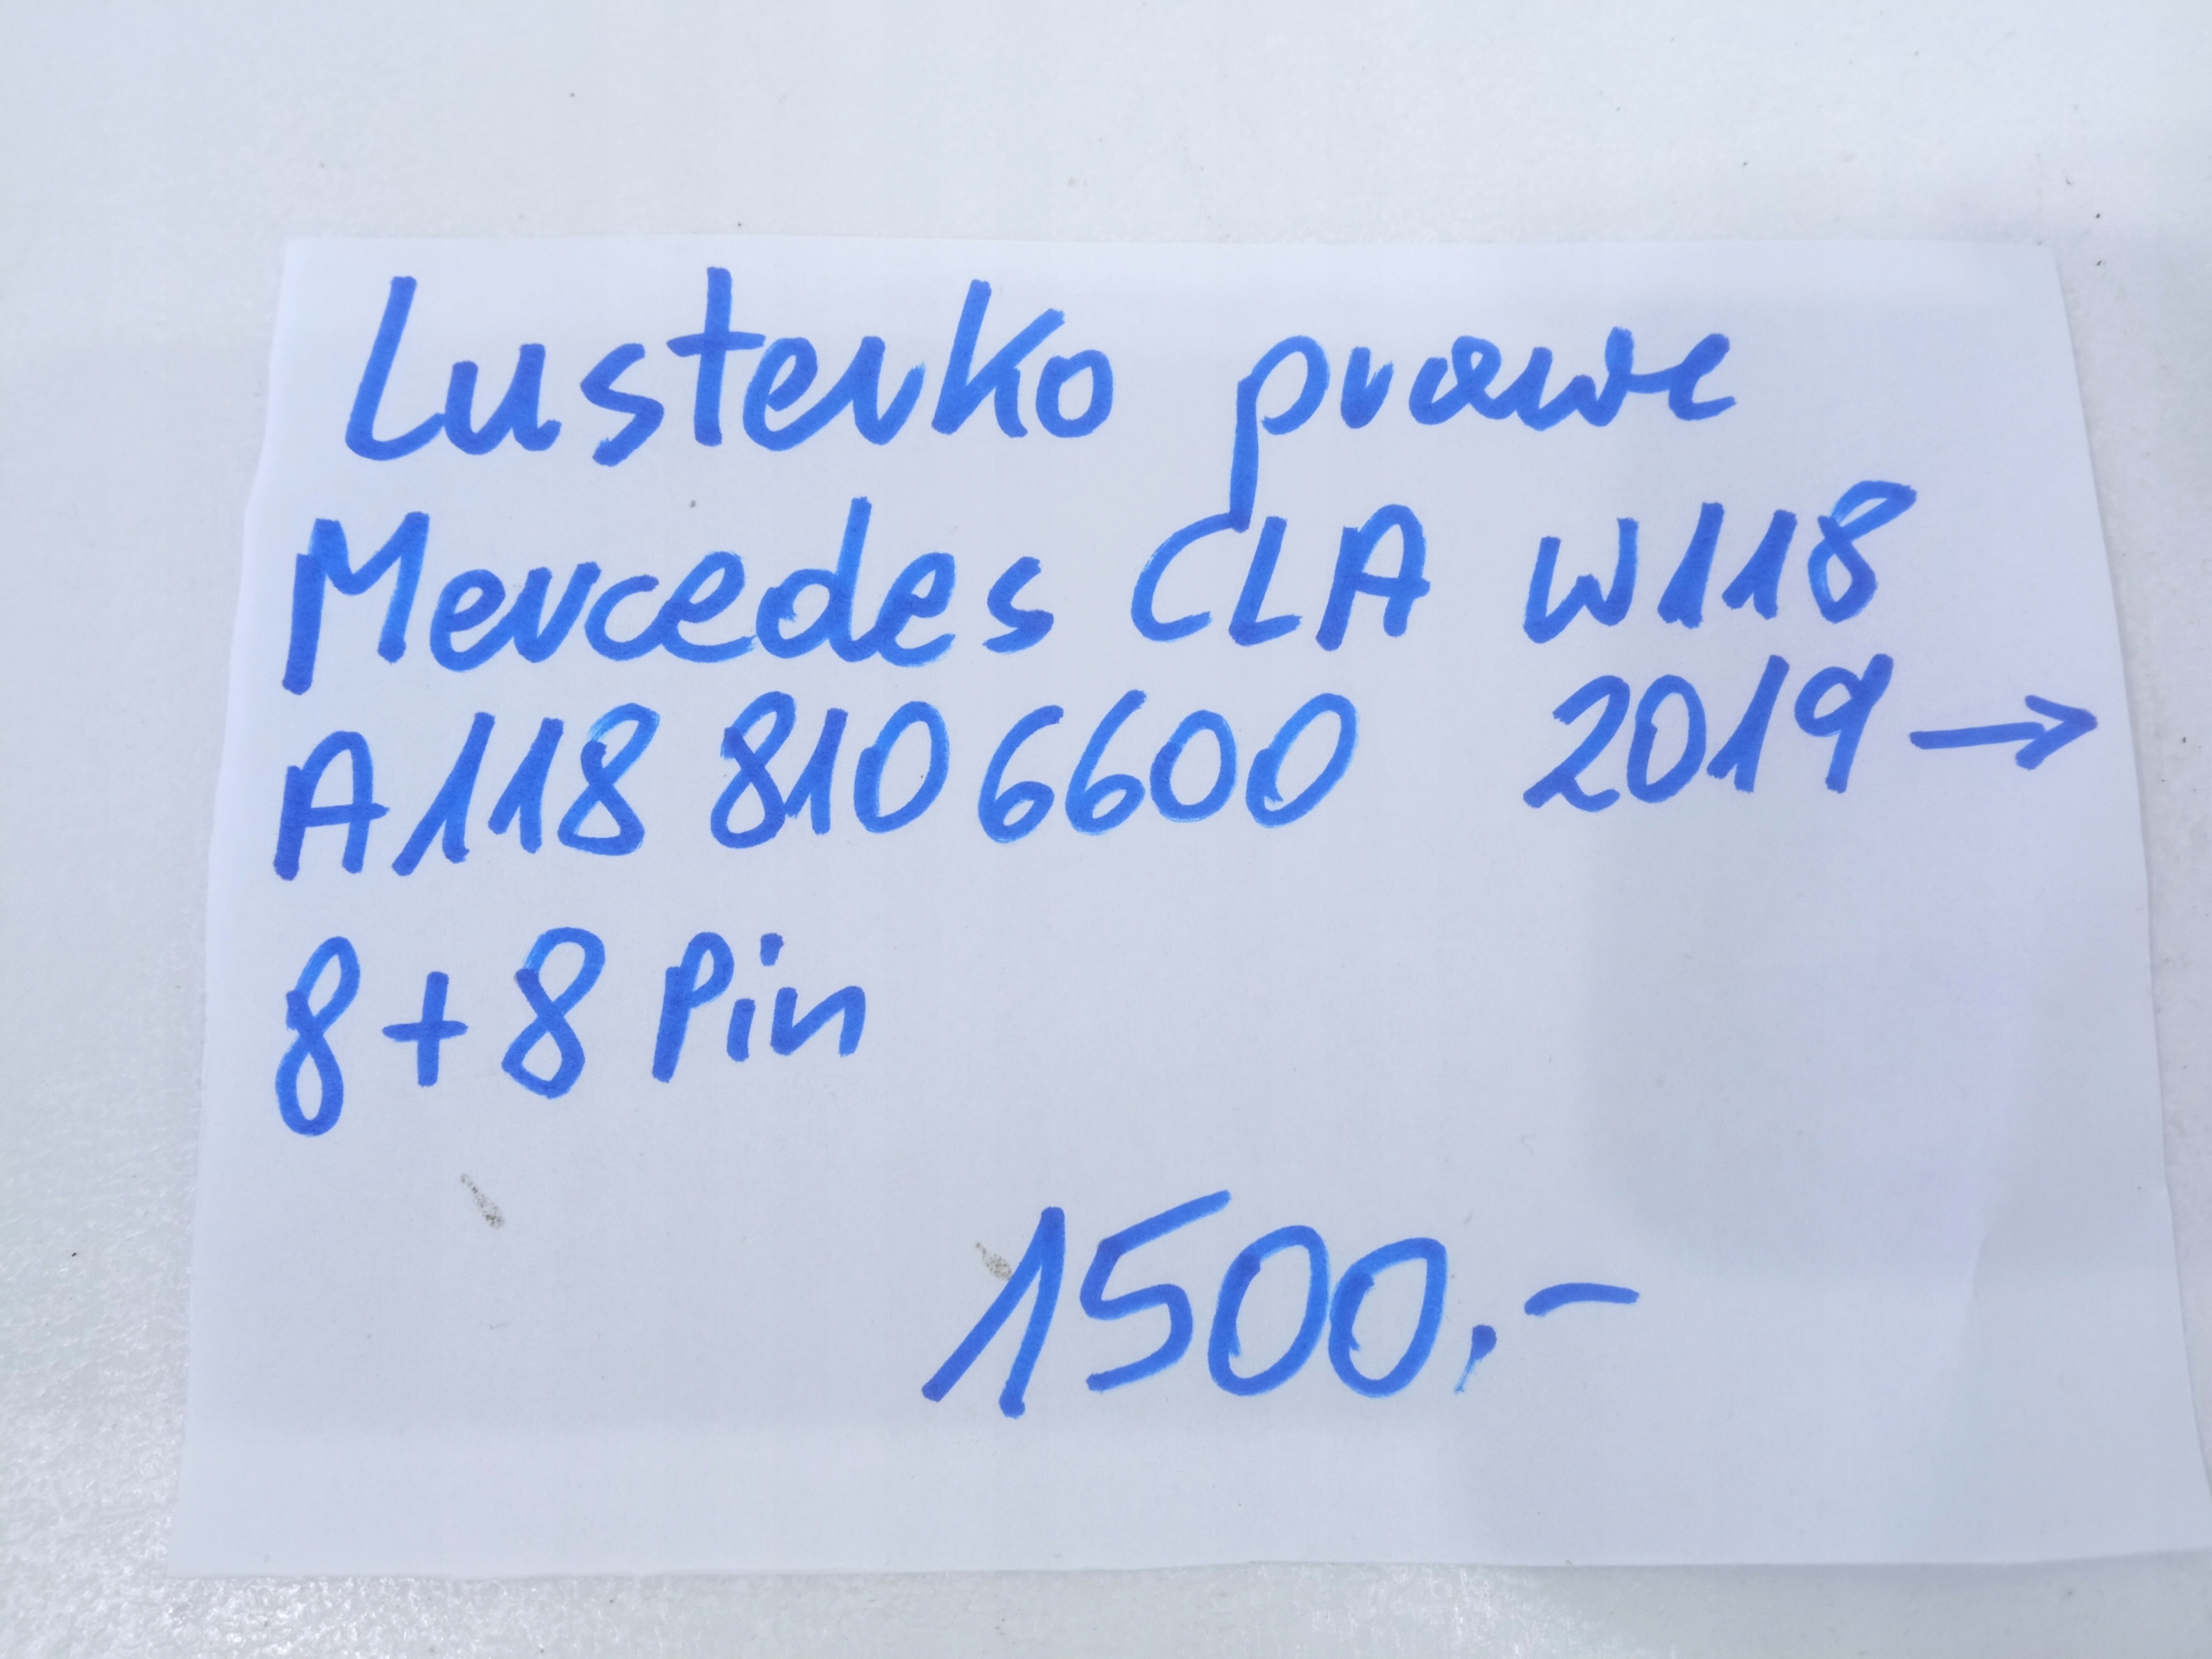 Lusterko prawe
Mercedes CLA W118
A118 810 6600 2019→
8+8 Pin
1500,-